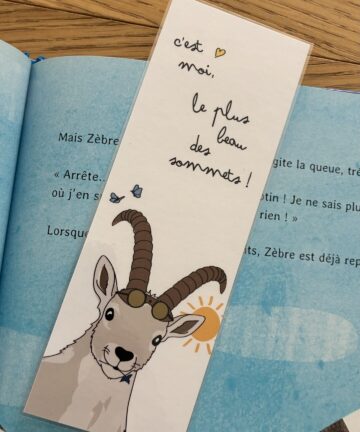 c'est
moi,
le plus
beau
des
sommets !
Mais Zèbre
gite la queue, trè
« Arrête.
otin ! Je ne sais plu
où j'en s
rien ! »
Lorsque
ts, Zèbre est déjà rep